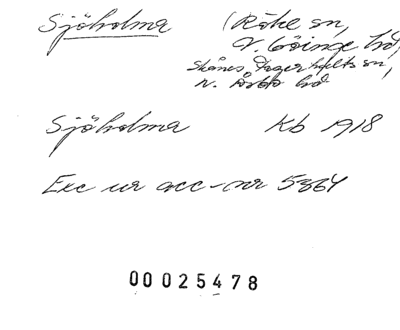 Sjöholma (Röke sn,
V. Göinge hd,
Skånes Fagerhults sn,
N. Åsbo hd
Sjöholma Kb 1918
Exc ur acc-nr 5364
00025478